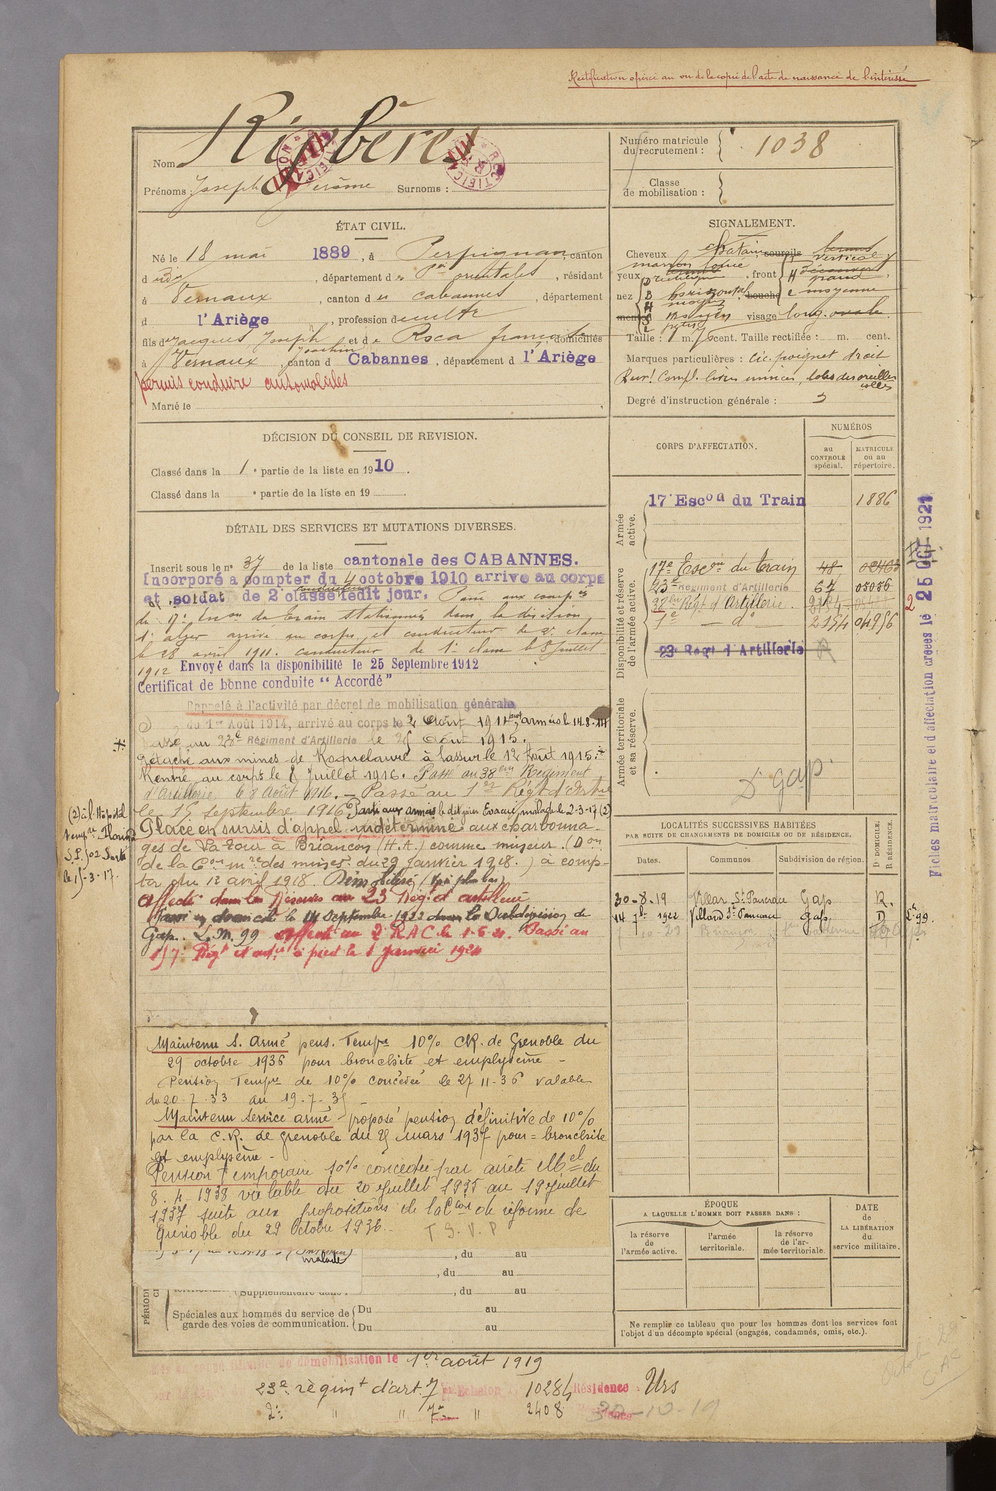 Rectification opérée au vu de la copie de l'acte de naissance de l'intéressé
Nom Ribères
Prénoms Joseph Jérôme Surnoms :
Numéro matricule du recrutement : 1038
Classe de mobilisation :
ÉTAT CIVIL.
Né le 18 mai 1889, à Perpignan, canton
d dudit, département des Pces orientales, résidant
à Vernaux, canton d es Cabannes, département
d l'Ariège, profession de culte
fils d Jacques Joseph et de Roca françoise, domiciliés
Joachim
à Vernaux, canton d Cabannes, département d l'Ariège
permis conduire automobiles
Marié le
DÉCISION DU CONSEIL DE REVISION.
Classé dans la 1e partie de la liste en 1910.
Classé dans la e partie de la liste en 19
DÉTAIL DES SERVICES ET MUTATIONS DIVERSES.
Inscrit sous le no 37 de la liste cantonale des CABANNES.
Incorporé à compter du 4 octobre 1910 arrivé au corps
et soldat de 2e classe ledit jour. Passé aux compies
du 17e Eson du train stationnées dans la division
d'alger arrivé au corps et conducteur de 2e classe
le 28 avril 1911. conducteur de 1e classe le 8 juillet
1912 Envoyé dans la disponibilité le 25 Septembre 1912
Certificat de bonne conduite "Accordé"
Rappelé à l'activité par décret de mobilisation générale
du 1er Août 1914, arrivé au corps le 2 Août 1914 aux armées le 14.8.14
Passé au 23e Régiment d'Artillerie le 25 Août 1915.
Détaché aux mines de à Lassur le 12 Août 1915.
Rentré au corps le 8 Juillet 1916. Passé au 38eme Régiment
d'Artillerie le 8 Août 1916. Passé au 1er Régt d'Artie
le 15 septembre 1916 Parti aux armées le dit jour Evacué malade le 2-3-17 (2)
Placé en sursis d'appel indéterminé aux charbonna-
ges de La Tour à Briançon (H.A.) comme mineur. (Don
de la Con mre des mines du 29 Janvier 1918.) à comp-
ter du 12 avril 1918. Démobilisé (voir plus bas)
affecté dans la Réserve au 23 Régt d'artillerie
Passé en domicile le 14 Septembre 1922 dans la Subdivision de
Gap. L.M. 99 affecté au 2 RAC le 1-6-21. Passé au
157e Régt d'artie à pied le 1 Janvier 1924
(2) à l'Hôpital
tempre
S.P. 502
le 15-3-17.
Maintenu S. Armé pens. Tempre 10% CR. de Grenoble du
29 octobre 1936 pour bronchite et emphysème -
Pension Tempre de 10% concédée le 27-11-36 valable
du 20-7-33 au 19-7-35 -
Maintenu Service armé - proposé pension définitive de 10%
par la C.R. de Grenoble du 25 mars 1937 pour = bronchite
et emphysème -
Pension Temporaire 10% concédée par arrêté Mel du
8.4.1938 valable du 20 juillet 1935 au 19 juillet
1937 suite aux propositions de la Cton de réforme de
Grenoble du 29 Octobre 1936.
T.S.V.P
malade
, du au
, du au
Supplémentaire dans , du au
Spéciales aux hommes du service de
garde des voies de communication. Du au
Du au
PÉRIODES
SIGNALEMENT.
Cheveux chatain sourcils bruns
yeux marron, front vertical
nez horizontal bouche moyenne
menton visage long ovale
Taille : 1 m. cent. Taille rectifiée : m. cent.
Marques particulières : Cic. poignet droit
Rens! Compl. lèvres minces, lobes des oreilles
collés
Degré d'instruction générale : 3
CORPS D'AFFECTATION.
NUMÉROS
au CONTROLE spécial.
MATRICULE ou au répertoire.
Armée active.
17e Escon du Train 1886
Disponibilité et réserve de l'armée active.
17e Escon du train 48
23e Régiment d'Artillerie 67 05086
38e Régt d'Artillerie.
1e — do 2154 04956
23e Régt d'Artillerie
Armée territoriale et sa réserve.
Dt Gap
LOCALITÉS SUCCESSIVES HABITÉES
PAR SUITE DE CHANGEMENTS DE DOMICILE OU DE RÉSIDENCE.
Dates. Communes. Subdivision de région. D. DOMICILE. R. RÉSIDENCE.
30-8-19 Villar St Pancrace Gap R.
14 7bre 1922 Villard St Pancrace Gap D Lt 99.
ÉPOQUE
A LAQUELLE L'HOMME DOIT PASSER DANS :
la réserve de l'armée active.
l'armée territoriale.
la réserve de l'armée territoriale.
DATE DE LA LIBÉRATION du service militaire.
Ne remplir ce tableau que pour les hommes dont les services font
l'objet d'un décompte spécial (engagés, condamnés, omis, etc.).
Fiches matriculaire et d'affectation créées le 25 OCT 1921
démobilisation le 1er août 1919
23e régimt d'art. 7 Echelon 10284 Résidence : Urs
2e " 7e " 2408
30-10-19